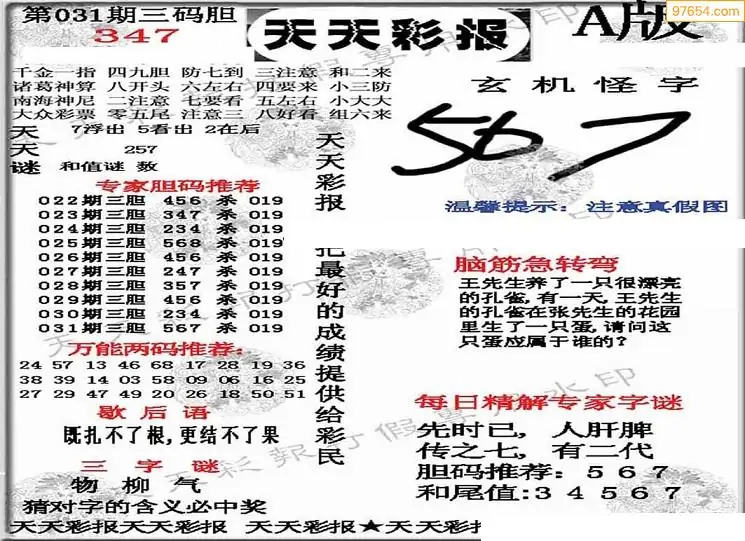 第031期三码胆
347
天天彩报
A版
97654.com
千金一指 四九胆 防七到 三注意 和二来
诸葛神算 八开头 六左右 四要来 小三防
南海神尼 二注意 七要看 五左右 小大大
大众彩票 零五尾 注意三 八好看 组六来
天 7浮出 5看出 2在后
天 257
谜 和值谜 数
玄机怪字
567
温馨提示: 注意真假图
专家胆码推荐
022期三胆 456 杀 019
023期三胆 347 杀 019
024期三胆 234 杀 019
025期三胆 568 杀 019
026期三胆 456 杀 019
027期三胆 247 杀 019
028期三胆 357 杀 019
029期三胆 456 杀 019
030期三胆 234 杀 019
031期三胆 567 杀 019
天天彩报
把最好的成绩提供给彩民
万能两码推荐:
24 57 13 46 68 17 28 19 36
38 39 14 03 58 09 06 16 25
27 29 47 49 20 26 18 50 51
歇后语
既扎不了根,更结不了果
三字谜
物柳气
猜对字的含义必中奖
脑筋急转弯
王先生养了一只很漂亮
的孔雀,有一天,王先生
的孔雀在张先生的花园
里生了一只蛋,请问这
只蛋应属于谁的?
每日精解专家字谜
先时已, 人肝脾
传之七, 有二代
胆码推荐: 5 6 7
和尾值:3 4 5 6 7
天天彩报天天彩报 天天彩报★天天彩报